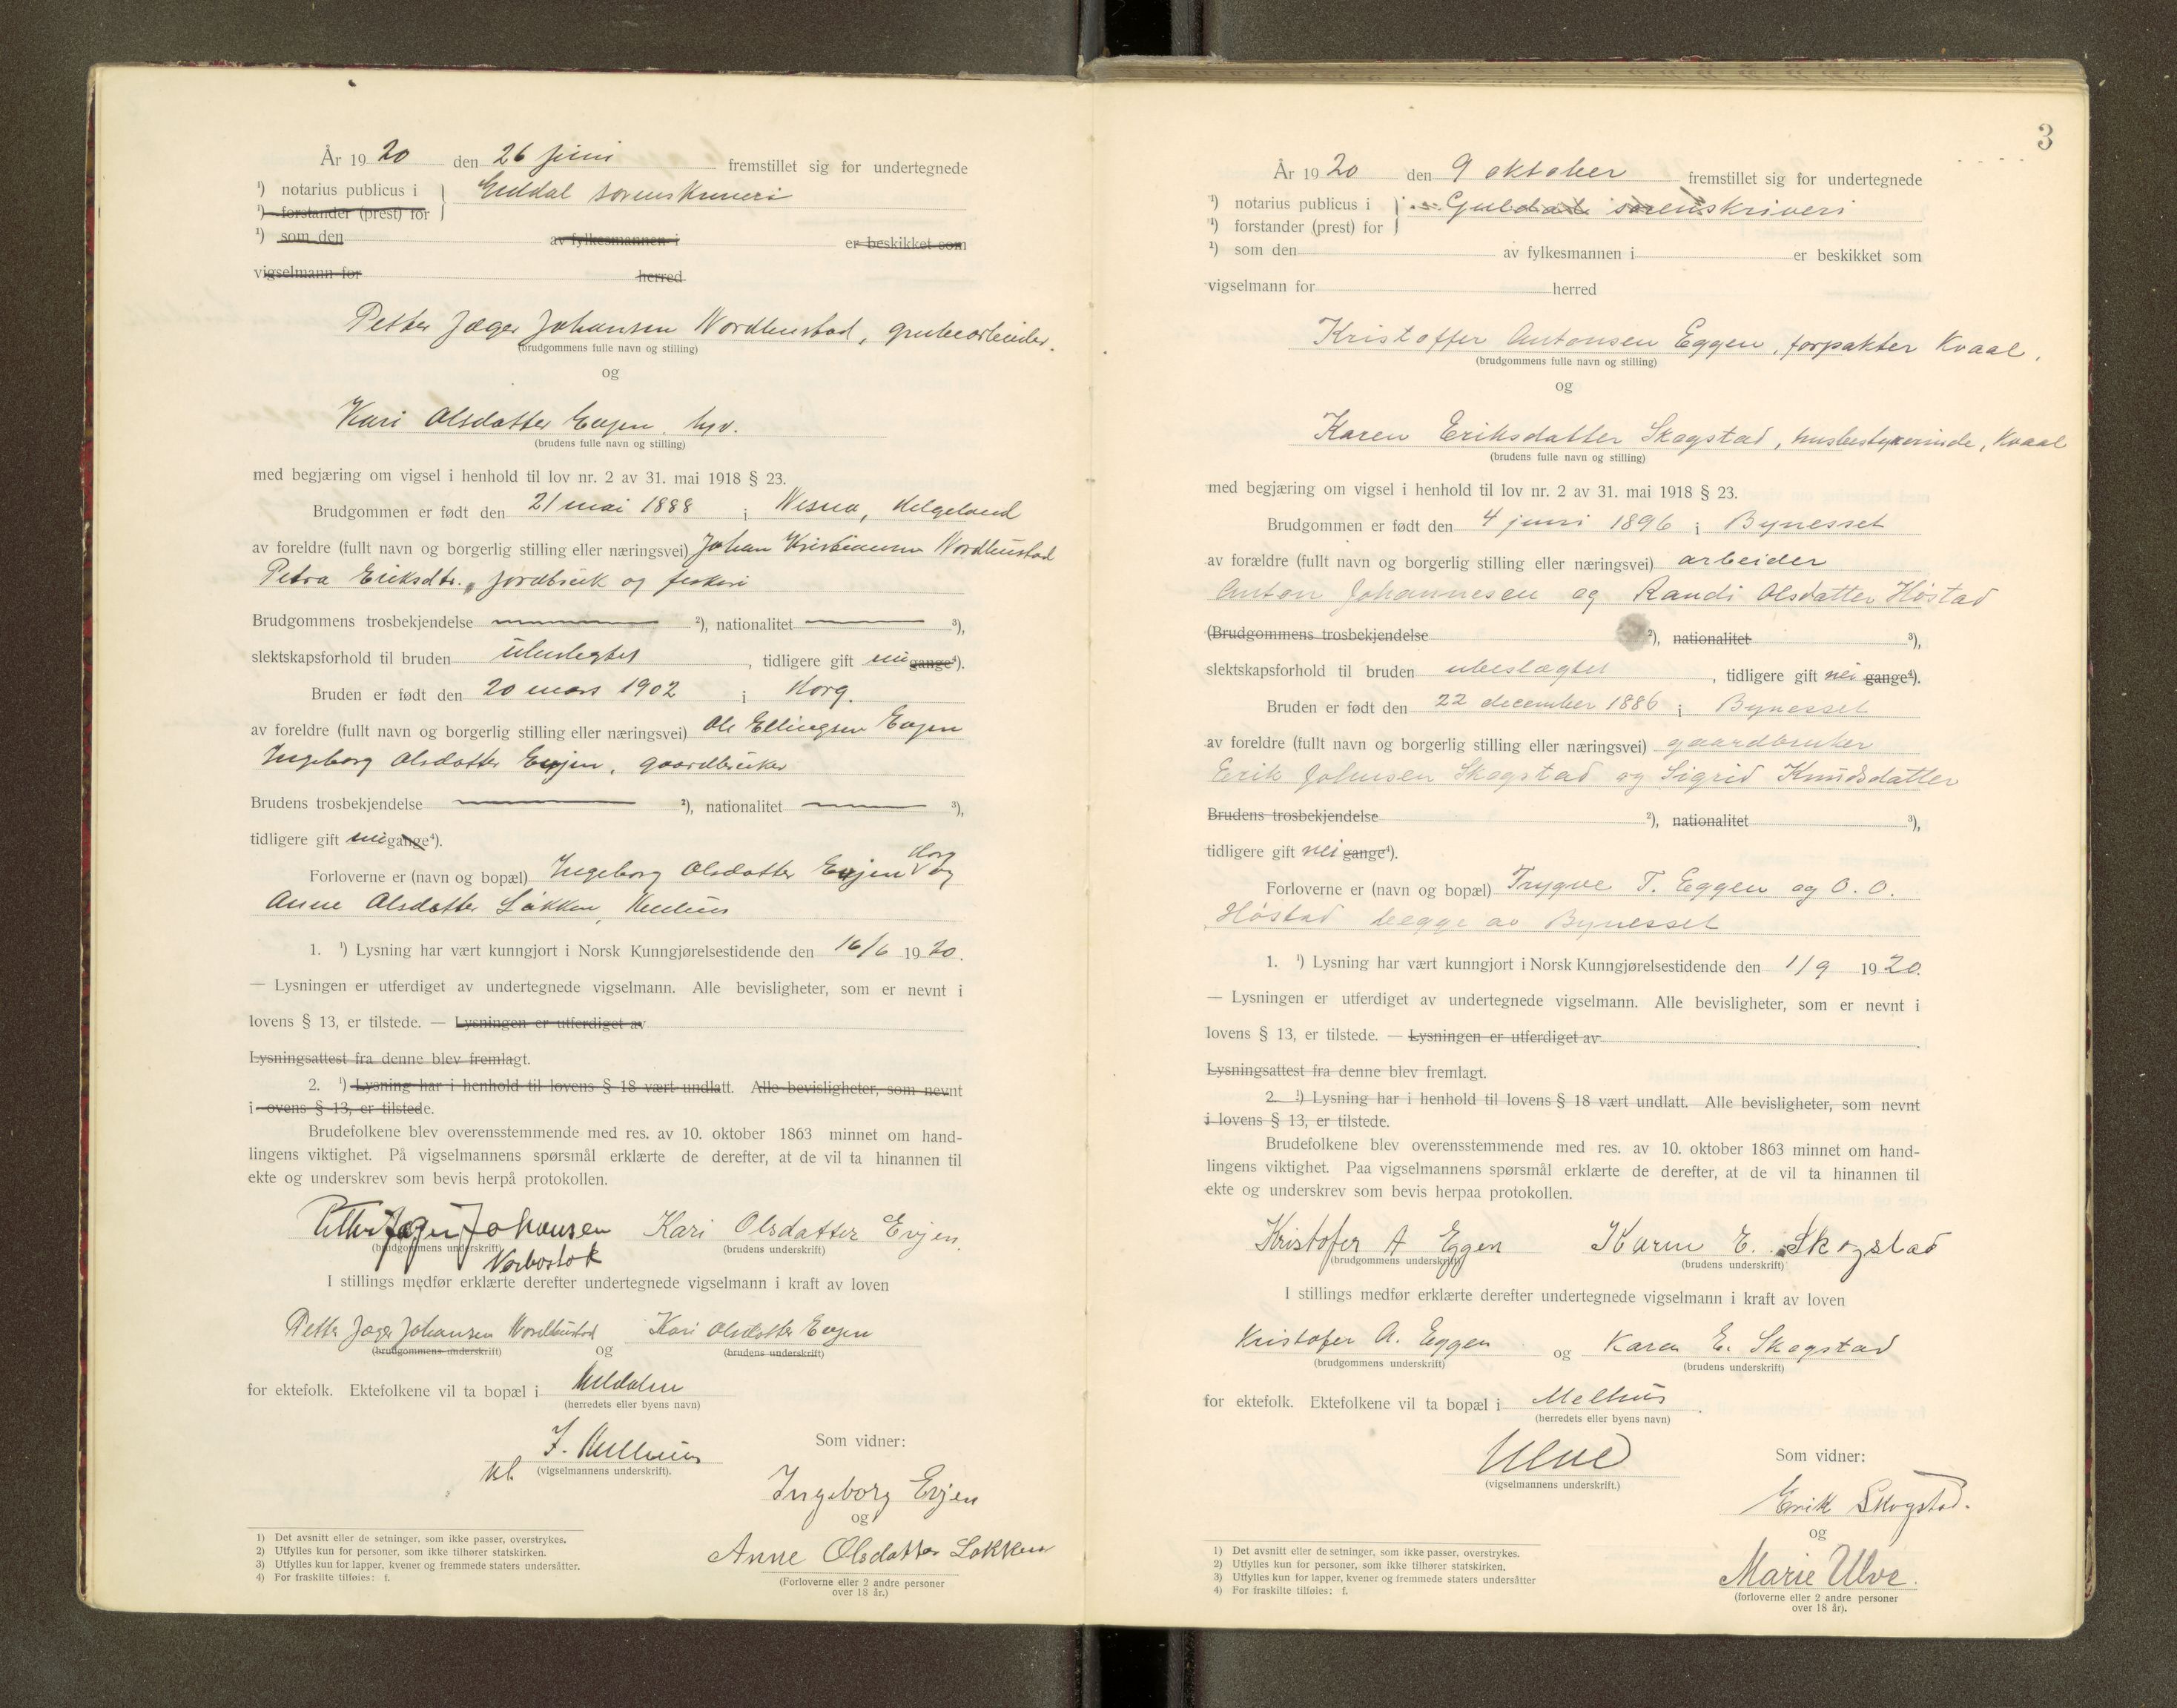 År 19 20 den 26 juni fremstillet sig for undertegnede
¹) notarius publicus i Guldal sorenskriveri
¹) forstander (prest) for
¹) som den av fylkesmannen i er beskikket som
vigselmann for herred
Petter Jæger Johansen Nordbustad, grubearbeider.
(brudgommens fulle navn og stilling)
og
Kari Olsdatter Evjen
(brudens fulle navn og stilling)
med begjæring om vigsel i henhold til lov nr. 2 av 31. mai 1918 § 23.
Brudgommen er født den 21 mai 1888 i Nesna, Helgeland
av foreldre (fullt navn og borgerlig stilling eller næringsvei) Johan Kristiansen Nordbustad
Petra Eriksdtr., jordbruk og fiskeri
Brudgommens trosbekjendelse ²), nationalitet ³),
slektskapsforhold til bruden ubeslegtet, tidligere gift nei gange⁴).
Bruden er født den 20 mars 1902 i Horg.
av foreldre (fullt navn og borgerlig stilling eller næringsvei) Ole Ellingsen Evjen
Ingeborg Olsdatter Evjen, gaardbruker
Brudens trosbekjendelse ²), nationalitet ³),
tidligere gift nei gange⁴).
Horg
Forloverne er (navn og bopæl) Ingeborg Olsdatter Evjen og
Anne Olsdatter Løkken, Melhus
1. ¹) Lysning har vært kunngjort i Norsk Kunngjørelsestidende den 16/6 19 20.
— Lysningen er utferdiget av undertegnede vigselmann. Alle bevisligheter, som er nevnt i
lovens § 13, er tilstede. — Lysningen er utferdiget av
Lysningsattest fra denne blev fremlagt.
2. ¹) Lysning har i henhold til lovens § 18 vært undlatt. Alle bevisligheter, som nevnt
i lovens § 13, er tilstede.
Brudefolkene blev overensstemmende med res. av 10. oktober 1863 minnet om hand-
lingens viktighet. På vigselmannens spørsmål erklærte de derefter, at de vil ta hinannen til
ekte og underskrev som bevis herpå protokollen.
Petter Jæger Johansen Kari Olsdatter Evjen.
(brudgommens underskrift) (brudens underskrift)
I stillings medfør erklærte derefter undertegnede vigselmann i kraft av loven
Petter Jæger Johansen Nordbustad Kari Olsdatter Evjen
(brudgommens underskrift) og (brudens underskrift)
for ektefolk. Ektefolkene vil ta bopæl i Meldalen
(herredets eller byens navn)
Som vidner:
(vigselmannens underskrift).
Ingeborg Evjen
og
Anne Olsdatter Løkken
(Forloverne eller 2 andre personer
over 18 år.)
1) Det avsnitt eller de setninger, som ikke passer, overstrykes.
2) Utfylles kun for personer, som ikke tilhører statskirken.
3) Utfylles kun for lapper, kvener og fremmede staters undersåtter.
4) For fraskilte tilføies: f.
3
År 19 20 den 9 oktober fremstillet sig for undertegnede
¹) notarius publicus i Guldal sorenskriveri
¹) forstander (prest) for
¹) som den av fylkesmannen i er beskikket som
vigselmann for herred
Kristoffer Antonsen Eggen, forpakter Kvaal.
(brudgommens fulle navn og stilling)
og
Karen Eriksdatter Skogstad, husbestyrerinde, Kvaal
(brudens fulle navn og stilling)
med begjæring om vigsel i henhold til lov nr. 2 av 31. mai 1918 § 23.
Brudgommen er født den 4 juni 1896 i Bynesset
av forældre (fullt navn og borgerlig stilling eller næringsvei) arbeider
Anton Johannesen og Randi Olsdatter Høstad
(Brudgommens trosbekjendelse ²), nationalitet ³),
slektskapsforhold til bruden ubeslægtet, tidligere gift nei gange⁴).
Bruden er født den 22 december 1886 i Bynesset
av foreldre (fullt navn og borgerlig stilling eller næringsvei) gaardbruker
Erik Johnsen Skogstad og Sigrid Knudsdatter
Brudens trosbekjendelse ²), nationalitet ³),
tidligere gift nei gange⁴).
Forloverne er (navn og bopæl) Trygve T. Eggen og O. O.
Høstad begge av Bynesset
1. ¹) Lysning har vært kunngjort i Norsk Kunngjørelsestidende den 1/9 19 20.
— Lysningen er utferdiget av undertegnede vigselmann. Alle bevisligheter, som er nevnt i
lovens § 13, er tilstede. — Lysningen er utferdiget av .
Lysningsattest fra denne blev fremlagt.
2. ¹) Lysning har i henhold til lovens § 18 vært undlatt. Alle bevisligheter, som nevnt
i lovens § 13, er tilstede.
Brudefolkene blev overensstemmende med res. av 10. oktober 1863 minnet om hand-
lingens viktighet. Paa vigselmannens spørsmål erklærte de derefter, at de vil ta hinannen til
ekte og underskrev som bevis herpaa protokollen.
Kristofer A Eggen Karen E. Skogstad
(brudgommens underskrift) (brudens underskrift)
I stillings medfør erklærte derefter undertegnede vigselmann i kraft av loven
Kristofer A. Eggen og Karen E. Skogstad
(brudgommens underskrift) (brudens underskrift)
for ektefolk. Ektefolkene vil ta bopæl i Melhus .
(herredets eller byens navn)
Ulve Som vidner:
(vigselmannens underskrift.)
Erik Skogstad.
og
Marie Ulve.
(forloverne eller 2 andre personer
over 18 år).
1) Det avsnitt eller de setninger, som ikke passer, overstrykes.
2) Utfylles kun for personer, som ikke tilhører statskirken.
3) Utfylles kun for lapper, kvener og fremmede staters undersåtter
4) For fraskilte tilføies: f.